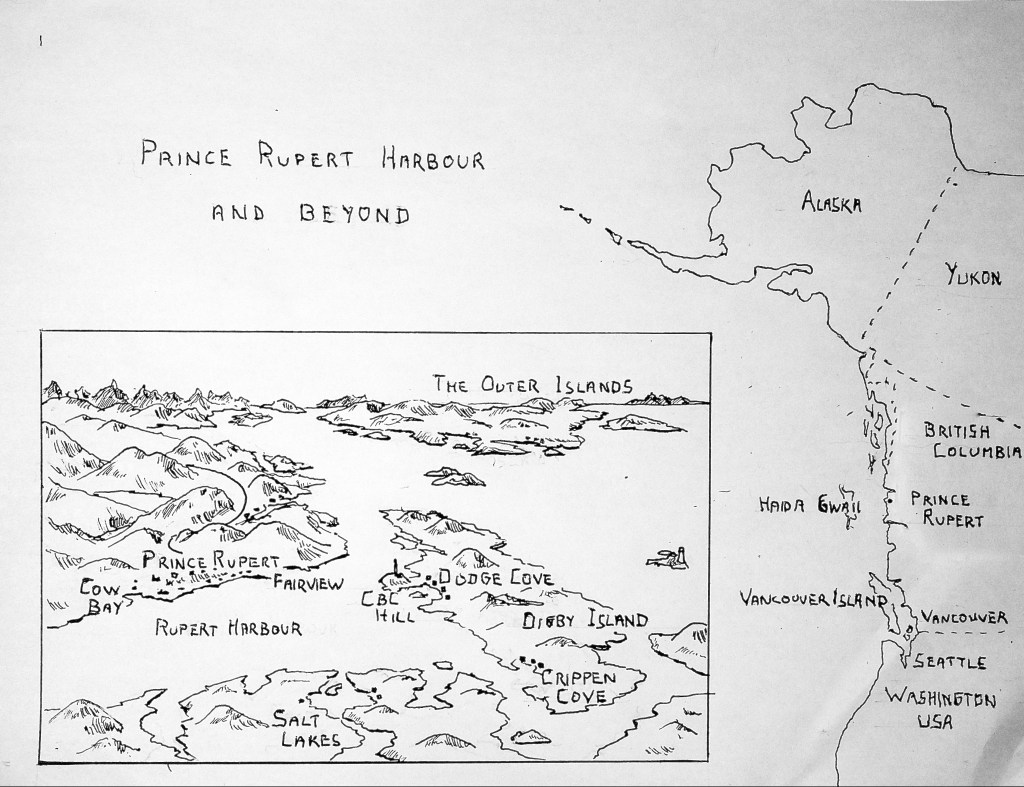 PRINCE RUPERT HARBOUR
AND BEYOND
ALASKA
YUKON
BRITISH
COLUMBIA
HAIDA GWAII
PRINCE
RUPERT
VANCOUVER ISLAND
VANCOUVER
SEATTLE
WASHINGTON
USA
THE OUTER ISLANDS
PRINCE RUPERT
FAIRVIEW
COW
BAY
RUPERT HARBOUR
CBC
HILL
DODGE COVE
DIGBY ISLAND
CRIPPEN
COVE
SALT
LAKES